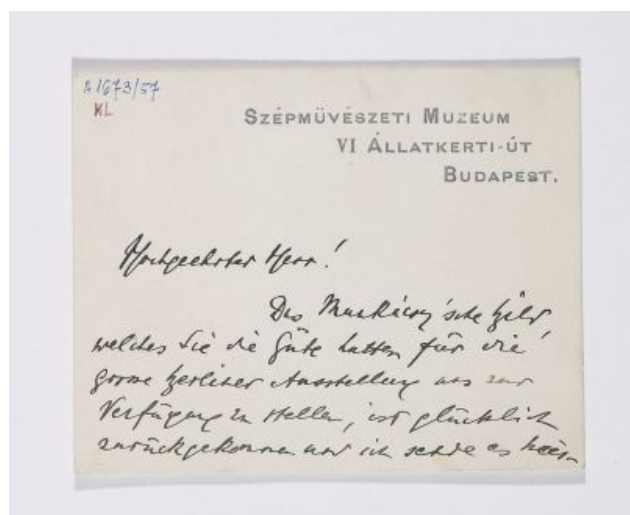 A 1673/57
KL
SZÉPMÜVÉSZETI MUZEUM
VI ÁLLATKERTI-ÚT
BUDAPEST.
Hochgeehrter Herr!
Das Munkácsy'sche Bild,
welches Sie die Güte hatten für die
grosse Berliner Ausstellung uns zur
Verfügung zu stellen, ist glücklich
zurückgekommen und ich sende es